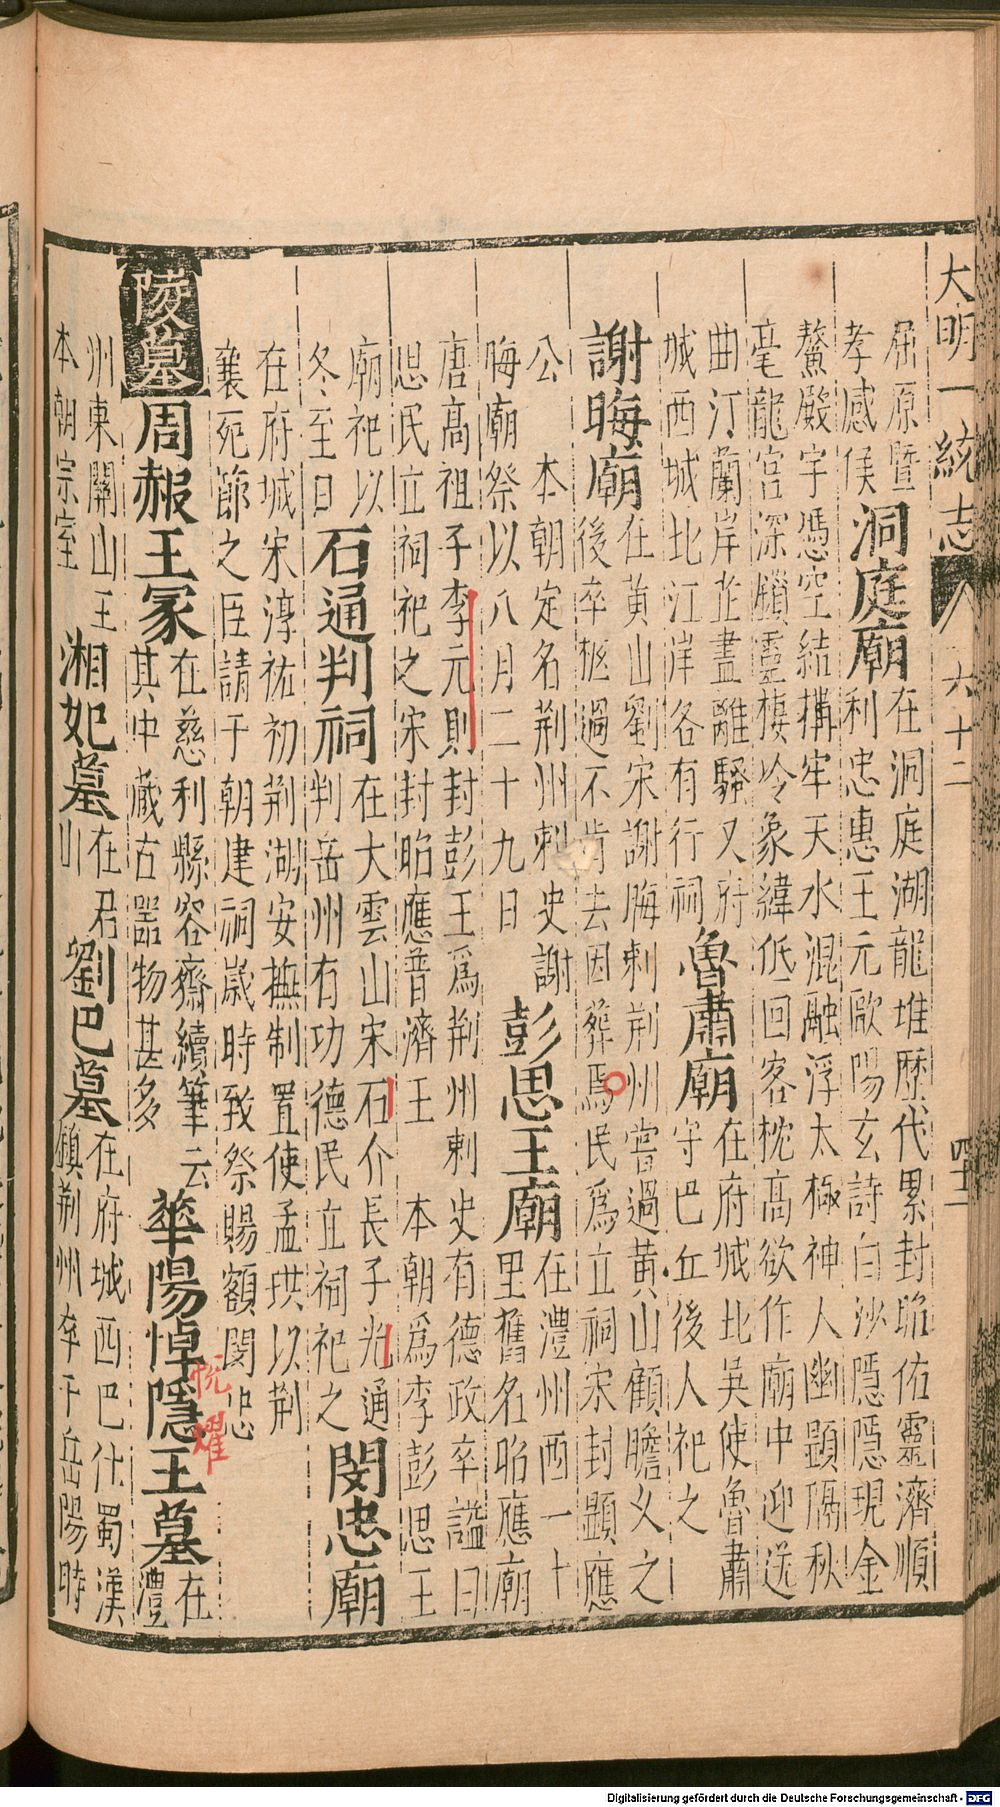 大明一統志 八 六十二 四十二
屈原暨
孝感侯
洞庭廟
在洞庭湖龍堆歷代累封昭佑靈濟順
利忠惠王元歐陽玄詩白沙隱隱現金
鰲殿宇憑空結構牢天水混融浮太極神人幽顯隔秋
毫龍宮深鎖靈棲冷象緯低回客枕高欲作廟中迎送
曲汀蘭岸芷盡離騷又府
城西城北江岸各有行祠
魯肅廟
在府城北吳使魯肅
守巴丘後人祀之
謝晦廟
在黄山劉宋謝晦刺荆州嘗過黄山顧瞻乂之
後卒柩過不肯去因葬焉民爲立祠宋封顯應
公 本朝定名荆州刺史謝
晦廟祭以八月二十九日
彭思王廟
在澧州西一十
里舊名昭應廟
唐高祖子李元則封彭王爲荆州刺史有德政卒謚曰
思民立祠祀之宋封昭應普濟王 本朝爲李彭思王
廟祀以
冬至日
石通判祠
在大雲山宋石介長子光通
判岳州有功德民立祠祀之
閔忠廟
在府城宋淳祐初荆湖安撫制置使孟珙以荆
襄死節之臣請于朝建祠歲時致祭賜額閔忠
陵墓
周赧王冢
在慈利縣容齋續筆云
其中藏古噐物甚多
華陽悼隱王墓
悅燿
在
澧
州東關山王
本朝宗室
湘妃墓
在君
山
劉巴墓
在府城西巴仕蜀漢
鎮荆州卒于岳陽時
Digitalisierung gefördert durch die Deutsche Forschungsgemeinschaft - DFG